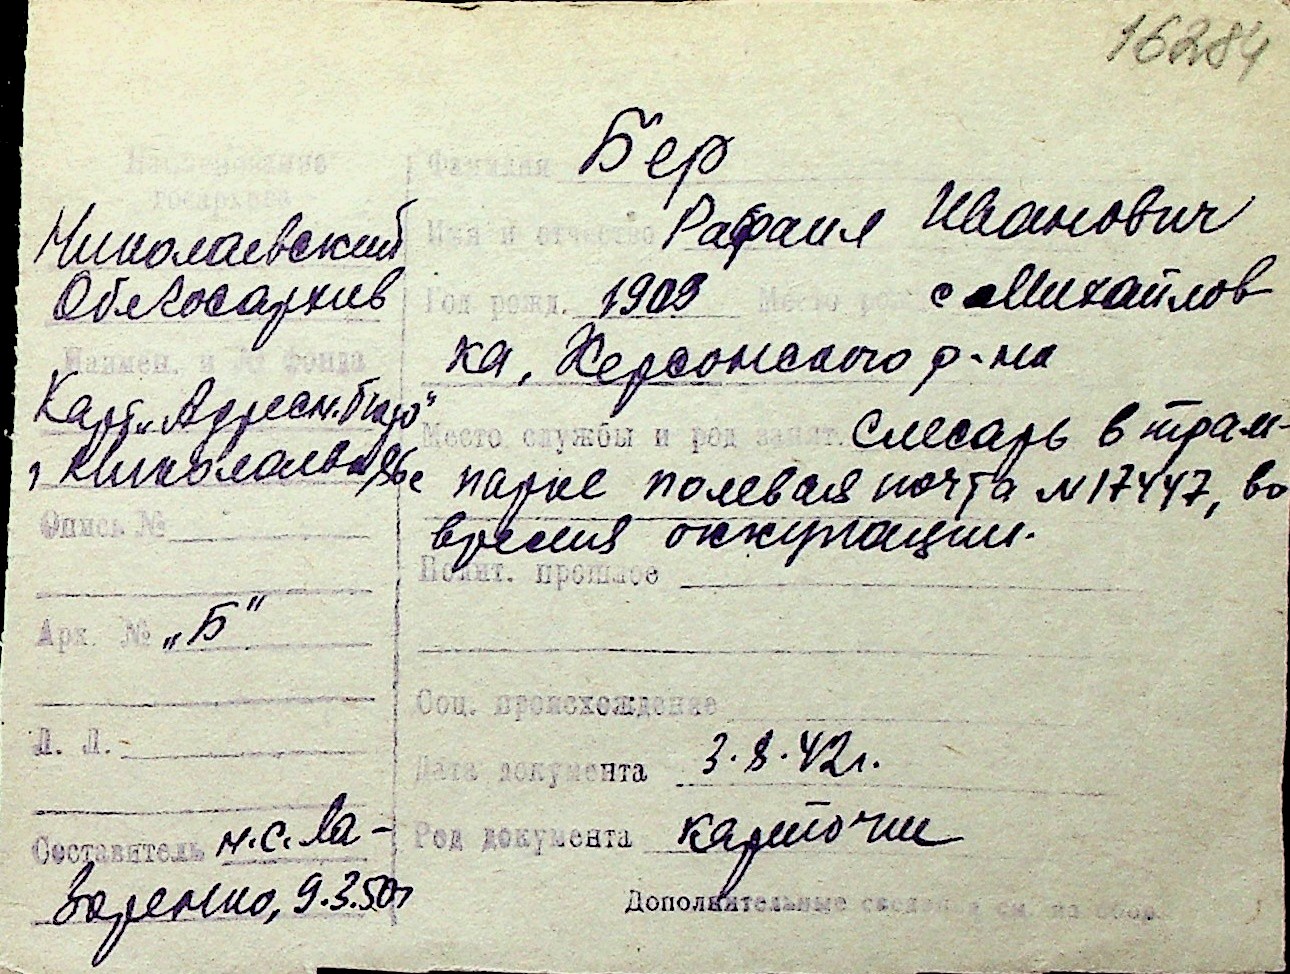 16284
Наименование
госархива
Николаевский
Облгосархив
Наимен. и № фонда
Карт. „Адресн. бюро"
г Николаева
Опись №
Арх. № „Б"
Л. Л.
Составитель н.с. Ла-
заренко, 9.3.50г
Фамилия Бер
Имя и отчество Рафаил Иванович
Год рожд. 1909 Место рож с Михайлов
ка, Херсонского р-на
Место службы и род занят. Слесарь в трам-
парке полевая почта №17447, во
время оккупации.
Полит. прошлое
Соц. происхождение
Дата документа 3.8.42г.
Род документа карточки
Дополнительные сведения см. на обор.